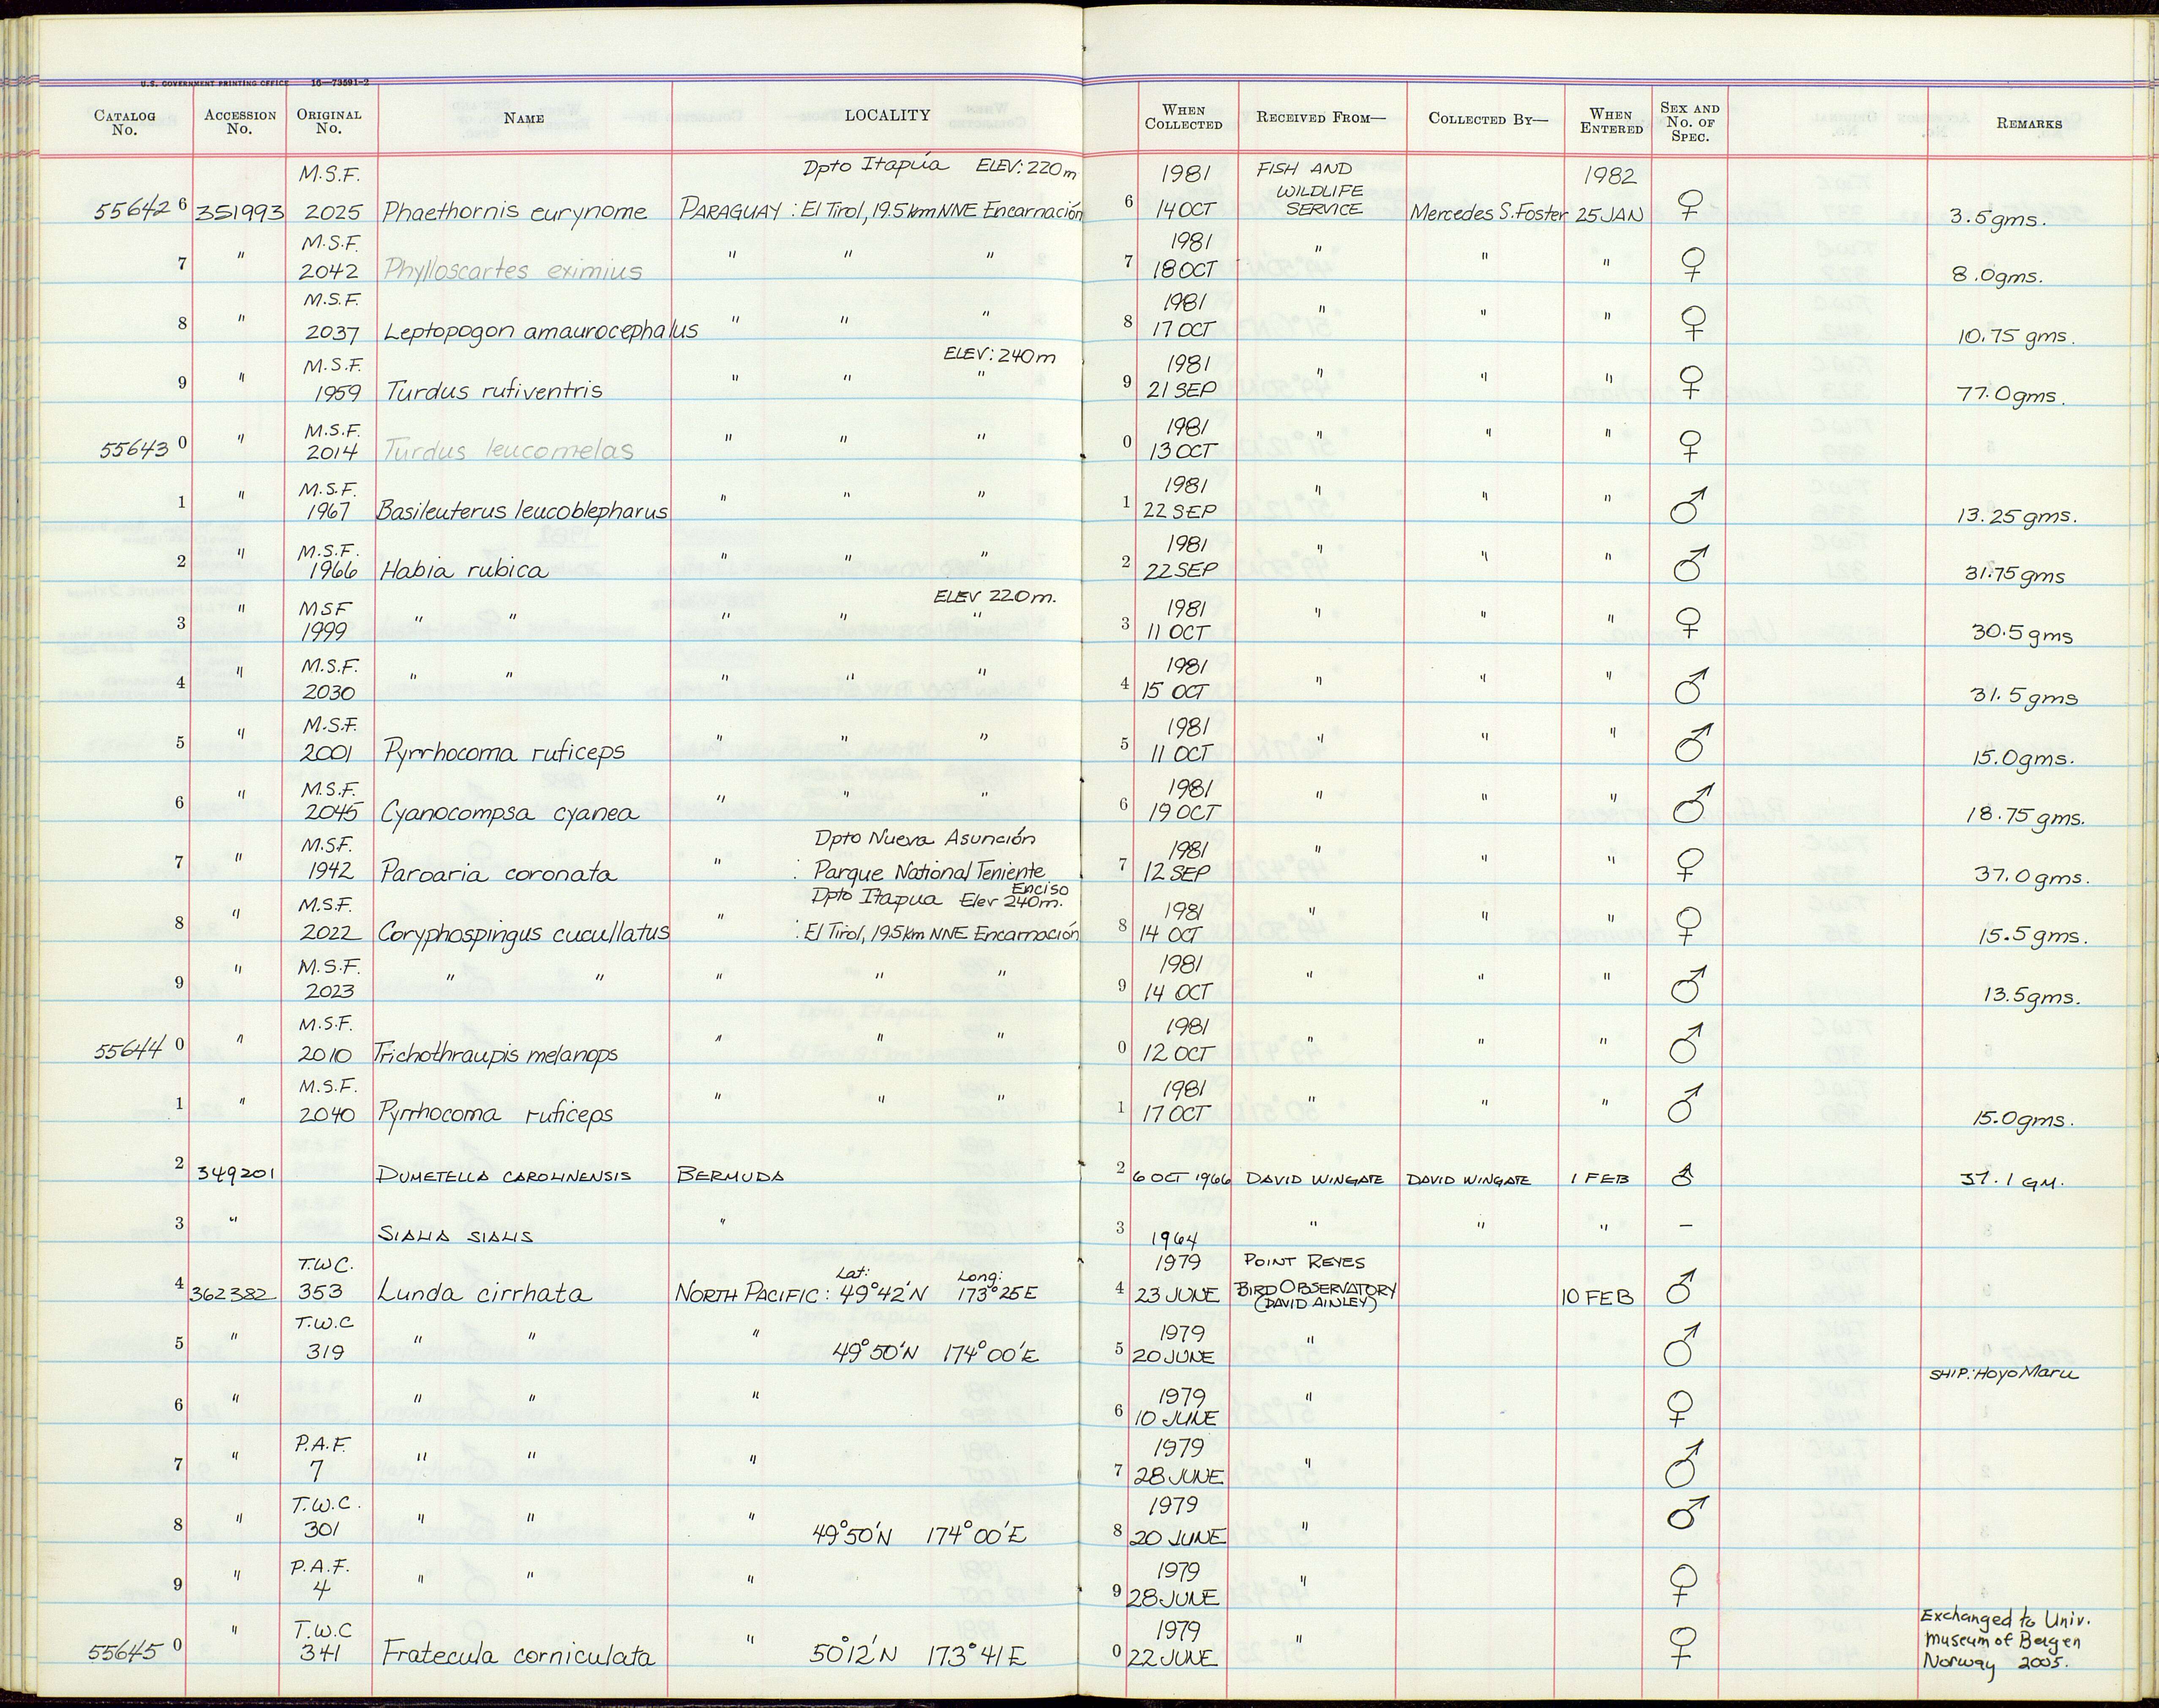 U.S. GOVERNMENT PRINTING OFFICE 16—73591-2
CATALOG No. ACCESSION No. ORIGINAL No. NAME LOCALITY WHEN COLLECTED RECEIVED FROM— COLLECTED BY— WHEN ENTERED SEX AND No. OF SPEC. REMARKS
M.S.F. Dpto Itapúa ELEV: 220m 1981 FISH AND WILDLIFE SERVICE 1982
55642 6 351993 2025 Phaethornis eurynome PARAGUAY : El Tirol, 19.5 km NNE Encarnación 6 14 OCT Mercedes S. Foster 25 JAN ♀ 3.5 gms.
M.S.F. 1981
7 " 2042 Phylloscartes eximius " " " 7 18 OCT " " " ♀ 8.0 gms.
M.S.F. 1981
8 " 2037 Leptopogon amaurocephalus " " " 8 17 OCT " " " ♀ 10.75 gms.
M.S.F. ELEV: 240m 1981
9 " 1959 Turdus rufiventris " " " 9 21 SEP " " " ♀ 77.0 gms.
M.S.F. 1981
55643 0 " 2014 Turdus leucomelas " " " 0 13 OCT " " " ♀
M.S.F. 1981
1 " 1967 Basileuterus leucoblepharus " " " 1 22 SEP " " " ♂ 13.25 gms.
M.S.F. 1981
2 " 1966 Habia rubica " " " 2 22 SEP " " " ♂ 31.75 gms
MSF ELEV 220m. 1981
3 " 1999 " " " " " 3 11 OCT " " " ♀ 30.5 gms
M.S.F. 1981
4 " 2030 " " " " " 4 15 OCT " " " ♂ 31.5 gms
M.S.F. 1981
5 " 2001 Pyrrhocoma ruficeps " " " 5 11 OCT " " " ♂ 15.0 gms.
M.S.F. 1981
6 " 2045 Cyanocompsa cyanea " " " 6 19 OCT " " " ♂ 18.75 gms.
M.S.F. Dpto Nueva Asunción 1981
7 " 1942 Paroaria coronata " : Parque National Teniente Enciso 7 12 SEP " " " ♀ 37.0 gms.
M.S.F. Dpto Itapua Elev 240m. 1981
8 " 2022 Coryphospingus cucullatus " : El Tirol, 19.5 km NNE Encarnación 8 14 OCT " " " ♀ 15.5 gms.
M.S.F. 1981
9 " 2023 " " " " " 9 14 OCT " " " ♂ 13.5 gms.
M.S.F. 1981
55644 0 " 2010 Trichothraupis melanops " " " 0 12 OCT " " " ♂
M.S.F. 1981
1 " 2040 Pyrrhocoma ruficeps " " " 1 17 OCT " " " ♂ 15.0 gms.
2 349201 DUMETELLA CAROLINENSIS BERMUDA 2 6 OCT 1966 DAVID WINGATE DAVID WINGATE 1 FEB ♂ 37.1 GM.
3 " SIALIA SIALIS " 3 1964 " " " –
T.W.C. Lat: Long: 1979 POINT REYES
4 362382 353 Lunda cirrhata NORTH PACIFIC : 49°42'N 173°25E 4 23 JUNE BIRD OBSERVATORY (DAVID AINLEY) 10 FEB ♂
T.W.C 1979
5 " 319 " " " 49°50'N 174°00'E 5 20 JUNE " ♂
SHIP: Hoyo Maru
6 " " " " 6 1979 10 JUNE " ♀
P.A.F. 1979
7 " 7 " " " 7 28 JUNE " ♂
T.W.C. 1979
8 " 301 " " " 49°50'N 174°00'E 8 20 JUNE " ♂
P.A.F. 1979
9 " 4 " " " 9 28 JUNE " ♀
T.W.C 1979 Exchanged to Univ.
55645 0 " 341 Fratecula corniculata " 50°12'N 173°41E 0 22 JUNE " ♀ Museum of Bergen
Norway 2005.